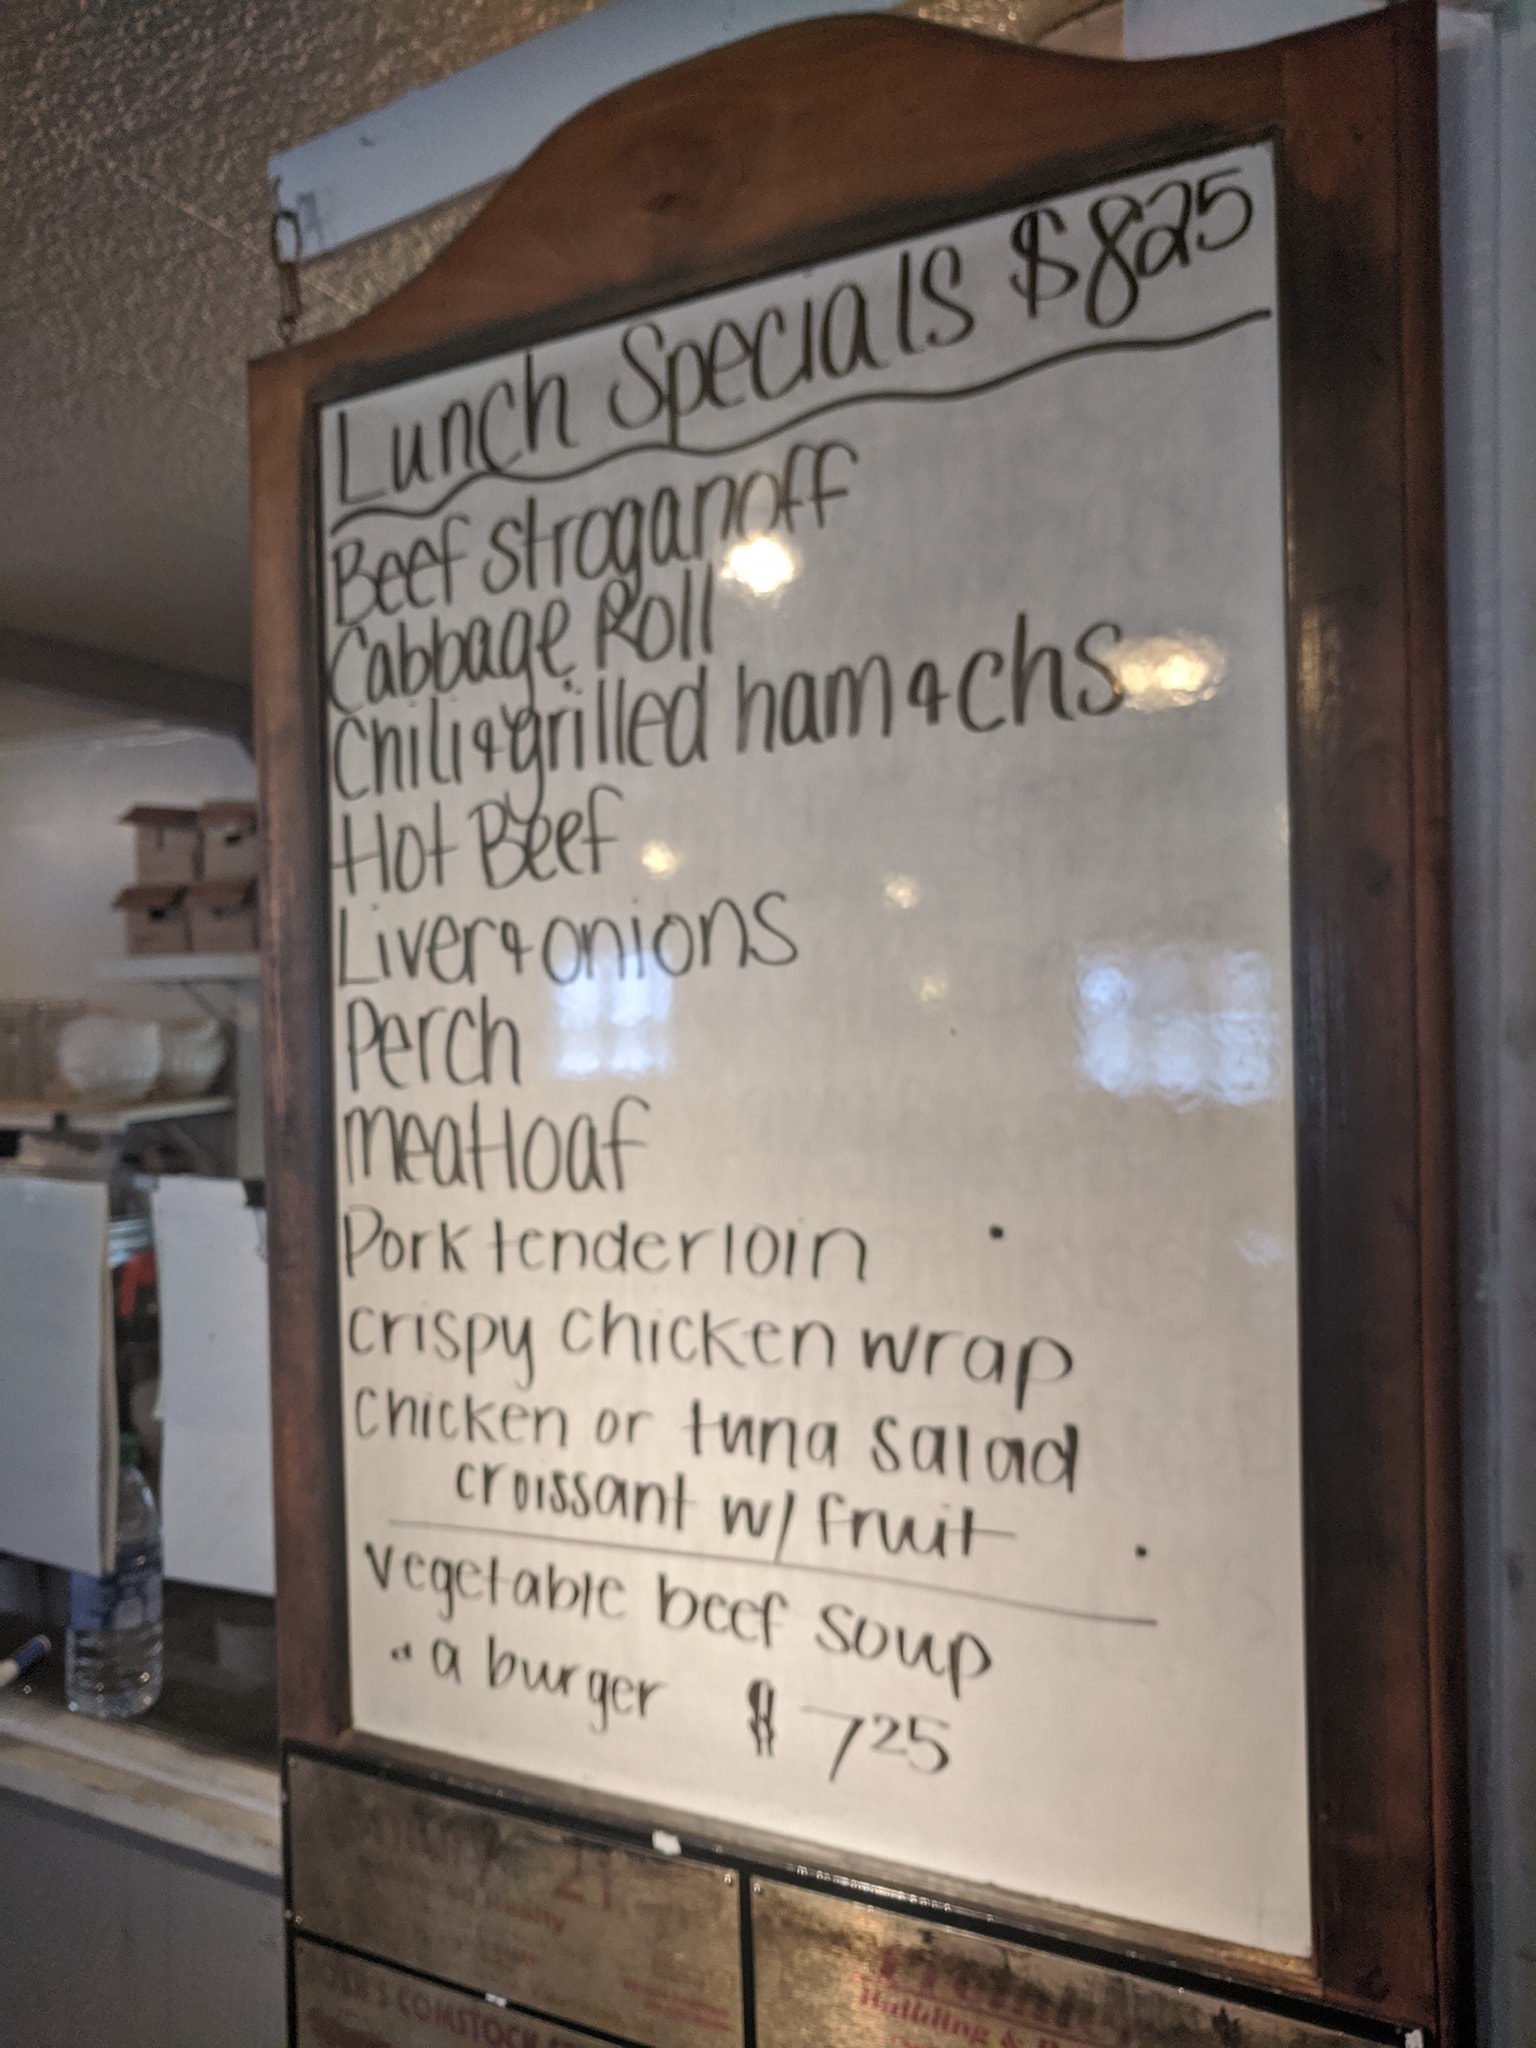 Lunch Specials $825
Beef stroganoff
Cabbage Roll
Chili & grilled ham & chs
Hot Beef
Liver & onions
Perch
meatloaf
Pork tenderloin
crispy chicken wrap
chicken or tuna salad
croissant w/ fruit
vegetable beef soup
" a burger $725
21
Realty
COMSTOCK
Building &